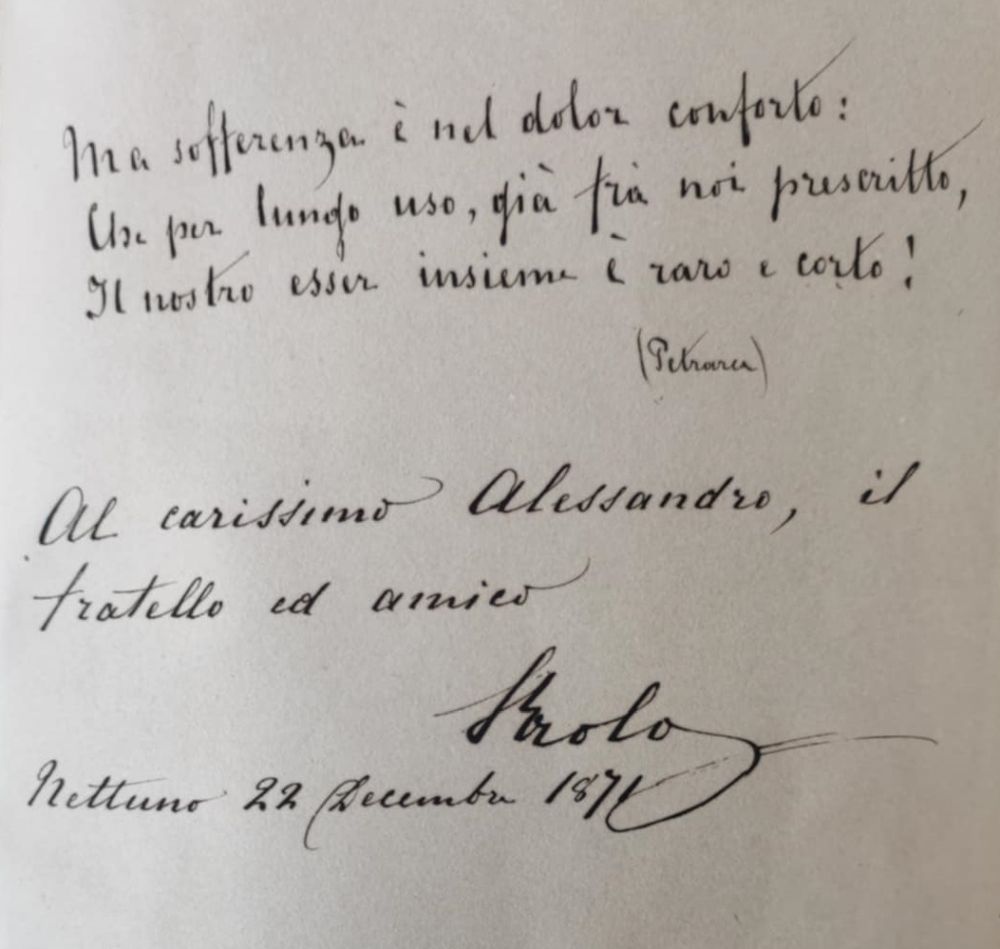 Ma sofferenza è nel dolor conforto:
Che per lungo uso, già fra noi prescritto,
Il nostro esser insieme è raro e corto!
(Petrarca)
Al carissimo Alessandro, il
fratello ed amico
Paolo
Nettuno 22 Decembre 1871